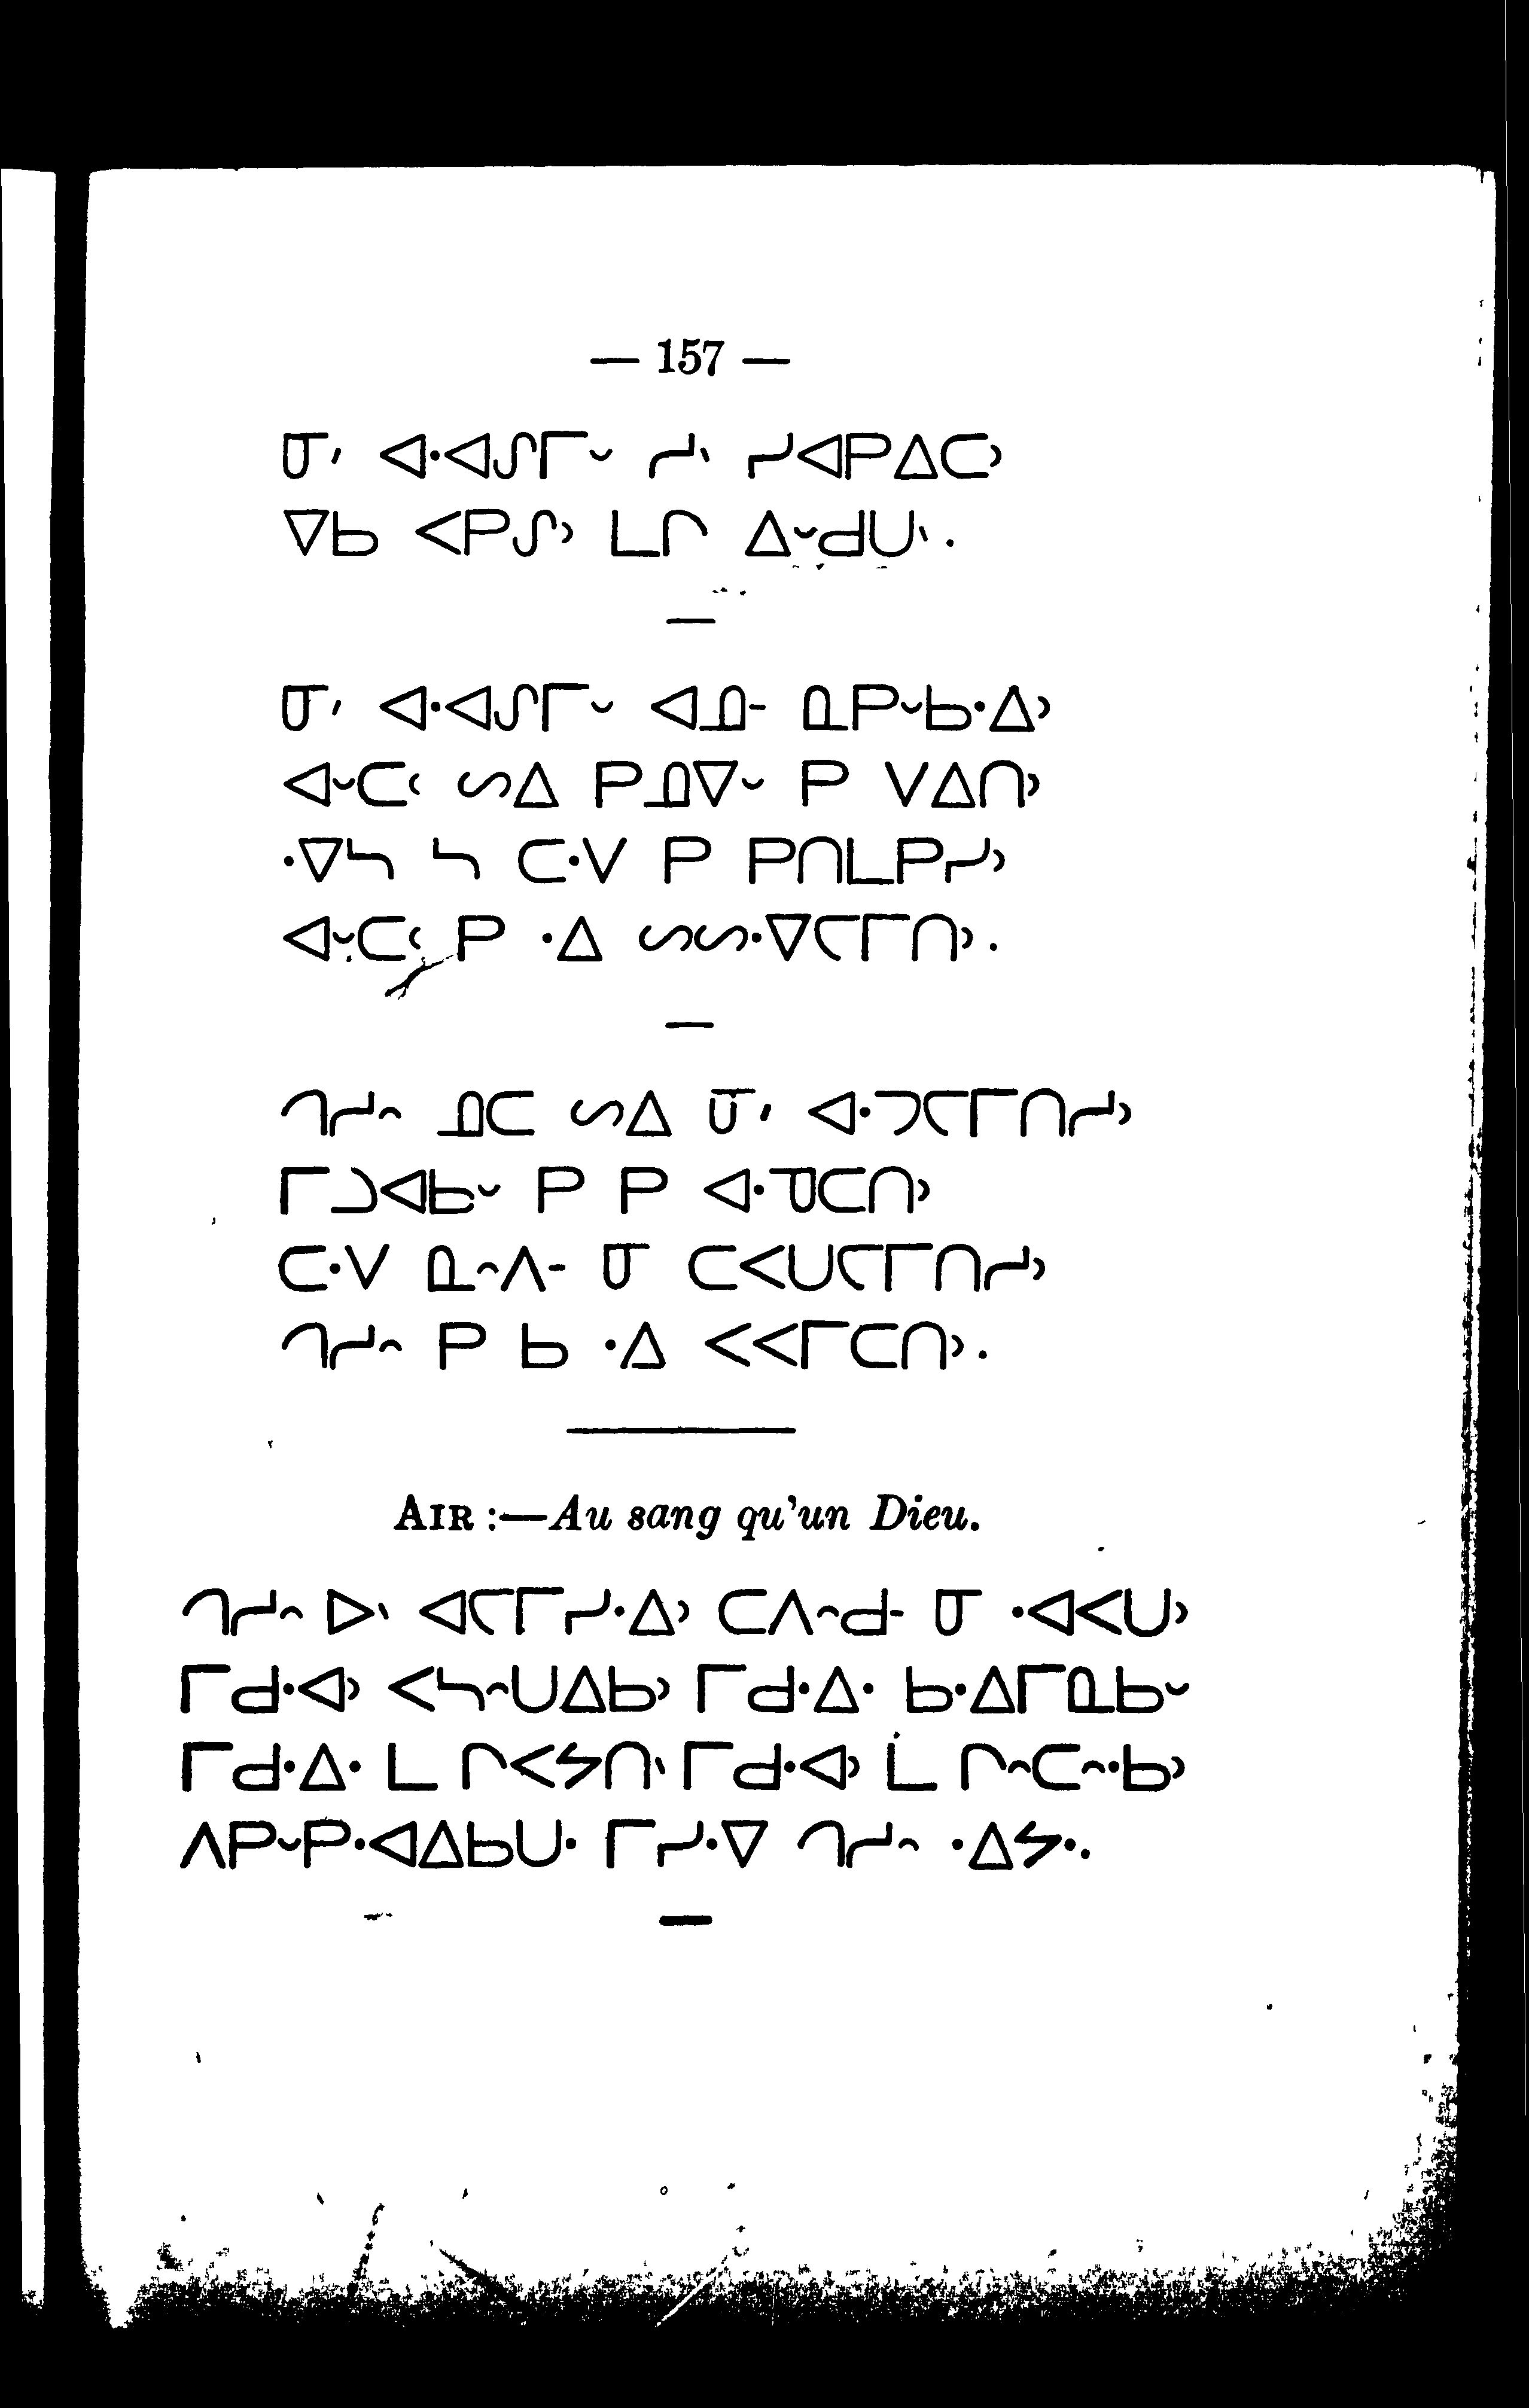 — 157 —
ᓂᐟ ᐊᐧᐊᔑᒥᐡ ᓯᐠ ᓱᐊᑭᐃᑕᐣ
ᐁᑲ ᐸᑭᔑᐣ ᒪᒋ ᐃᐡᑯᑌᐠ.
ᓂᐟ ᐊᐧᐊᔑᒥᐡ ᐊᓄᐨ ᓇᑭᐡᑲᐧᐃᐣ
ᐊᐡᑕᑦ ᔕᐃ ᑭᓄᐁᐡ ᑭ ᐯᐃᑎᐣ
ᐧᐁᓴ ᓴ ᑕᐧᐯ ᑭ ᑭᑎᒪᑭᓱᐣ
ᐊᐡᑕᑦ ᑭ ᐧᐃ ᔕᔕᐧᐁᓕᒥᑎᐣ.
ᒉᓯᐢ ᓄᑕ ᔕᐃ ᓂᐟ ᐊᐧᓓᓕᒥᑎᓯᐣ
ᒥᓗᐊᑲᐡ ᑭ ᑭ ᐊᐧᓀᑕᑎᐣ
ᑕᐧᐯ ᓇᐢᐱᐨ ᓂ ᑕᐸᑌᓕᒥᑎᓯᐣ
ᒉᓯᐢ ᑭ ᑲ ᐧᐃ ᐸᐸᒥᑕᑎᐣ.
AIR :—Au sang qu'un Dieu.
ᒉᓯᐢ ᐅᐠ ᐊᓕᒥᓱᐧᐃᐣ ᑕᐱᐢᑯᐨ ᓂ ᐧᐊᐸᑌᐣ
ᒥᑯᐧᐊᐣ ᐸᓴᐢᑌᐃᑲᐣ ᒥᑯᐧᐃᐧ ᑲᐧᐃᒥᓇᑲᐡ
ᒥᑯᐧᐃᐧ ᒪ ᒋᐸᔭᑎᐠ ᒥᑯᐧᐊᐣ ᒫ ᒋᐢᑕᐢᐧᑲᐣ
ᐱᑭᐡᑭᐧᐊᐃᑲᑌᐧ ᒥᓱᐧᐁ ᒉᓯᐢ ᐧᐃᔭᐧ.